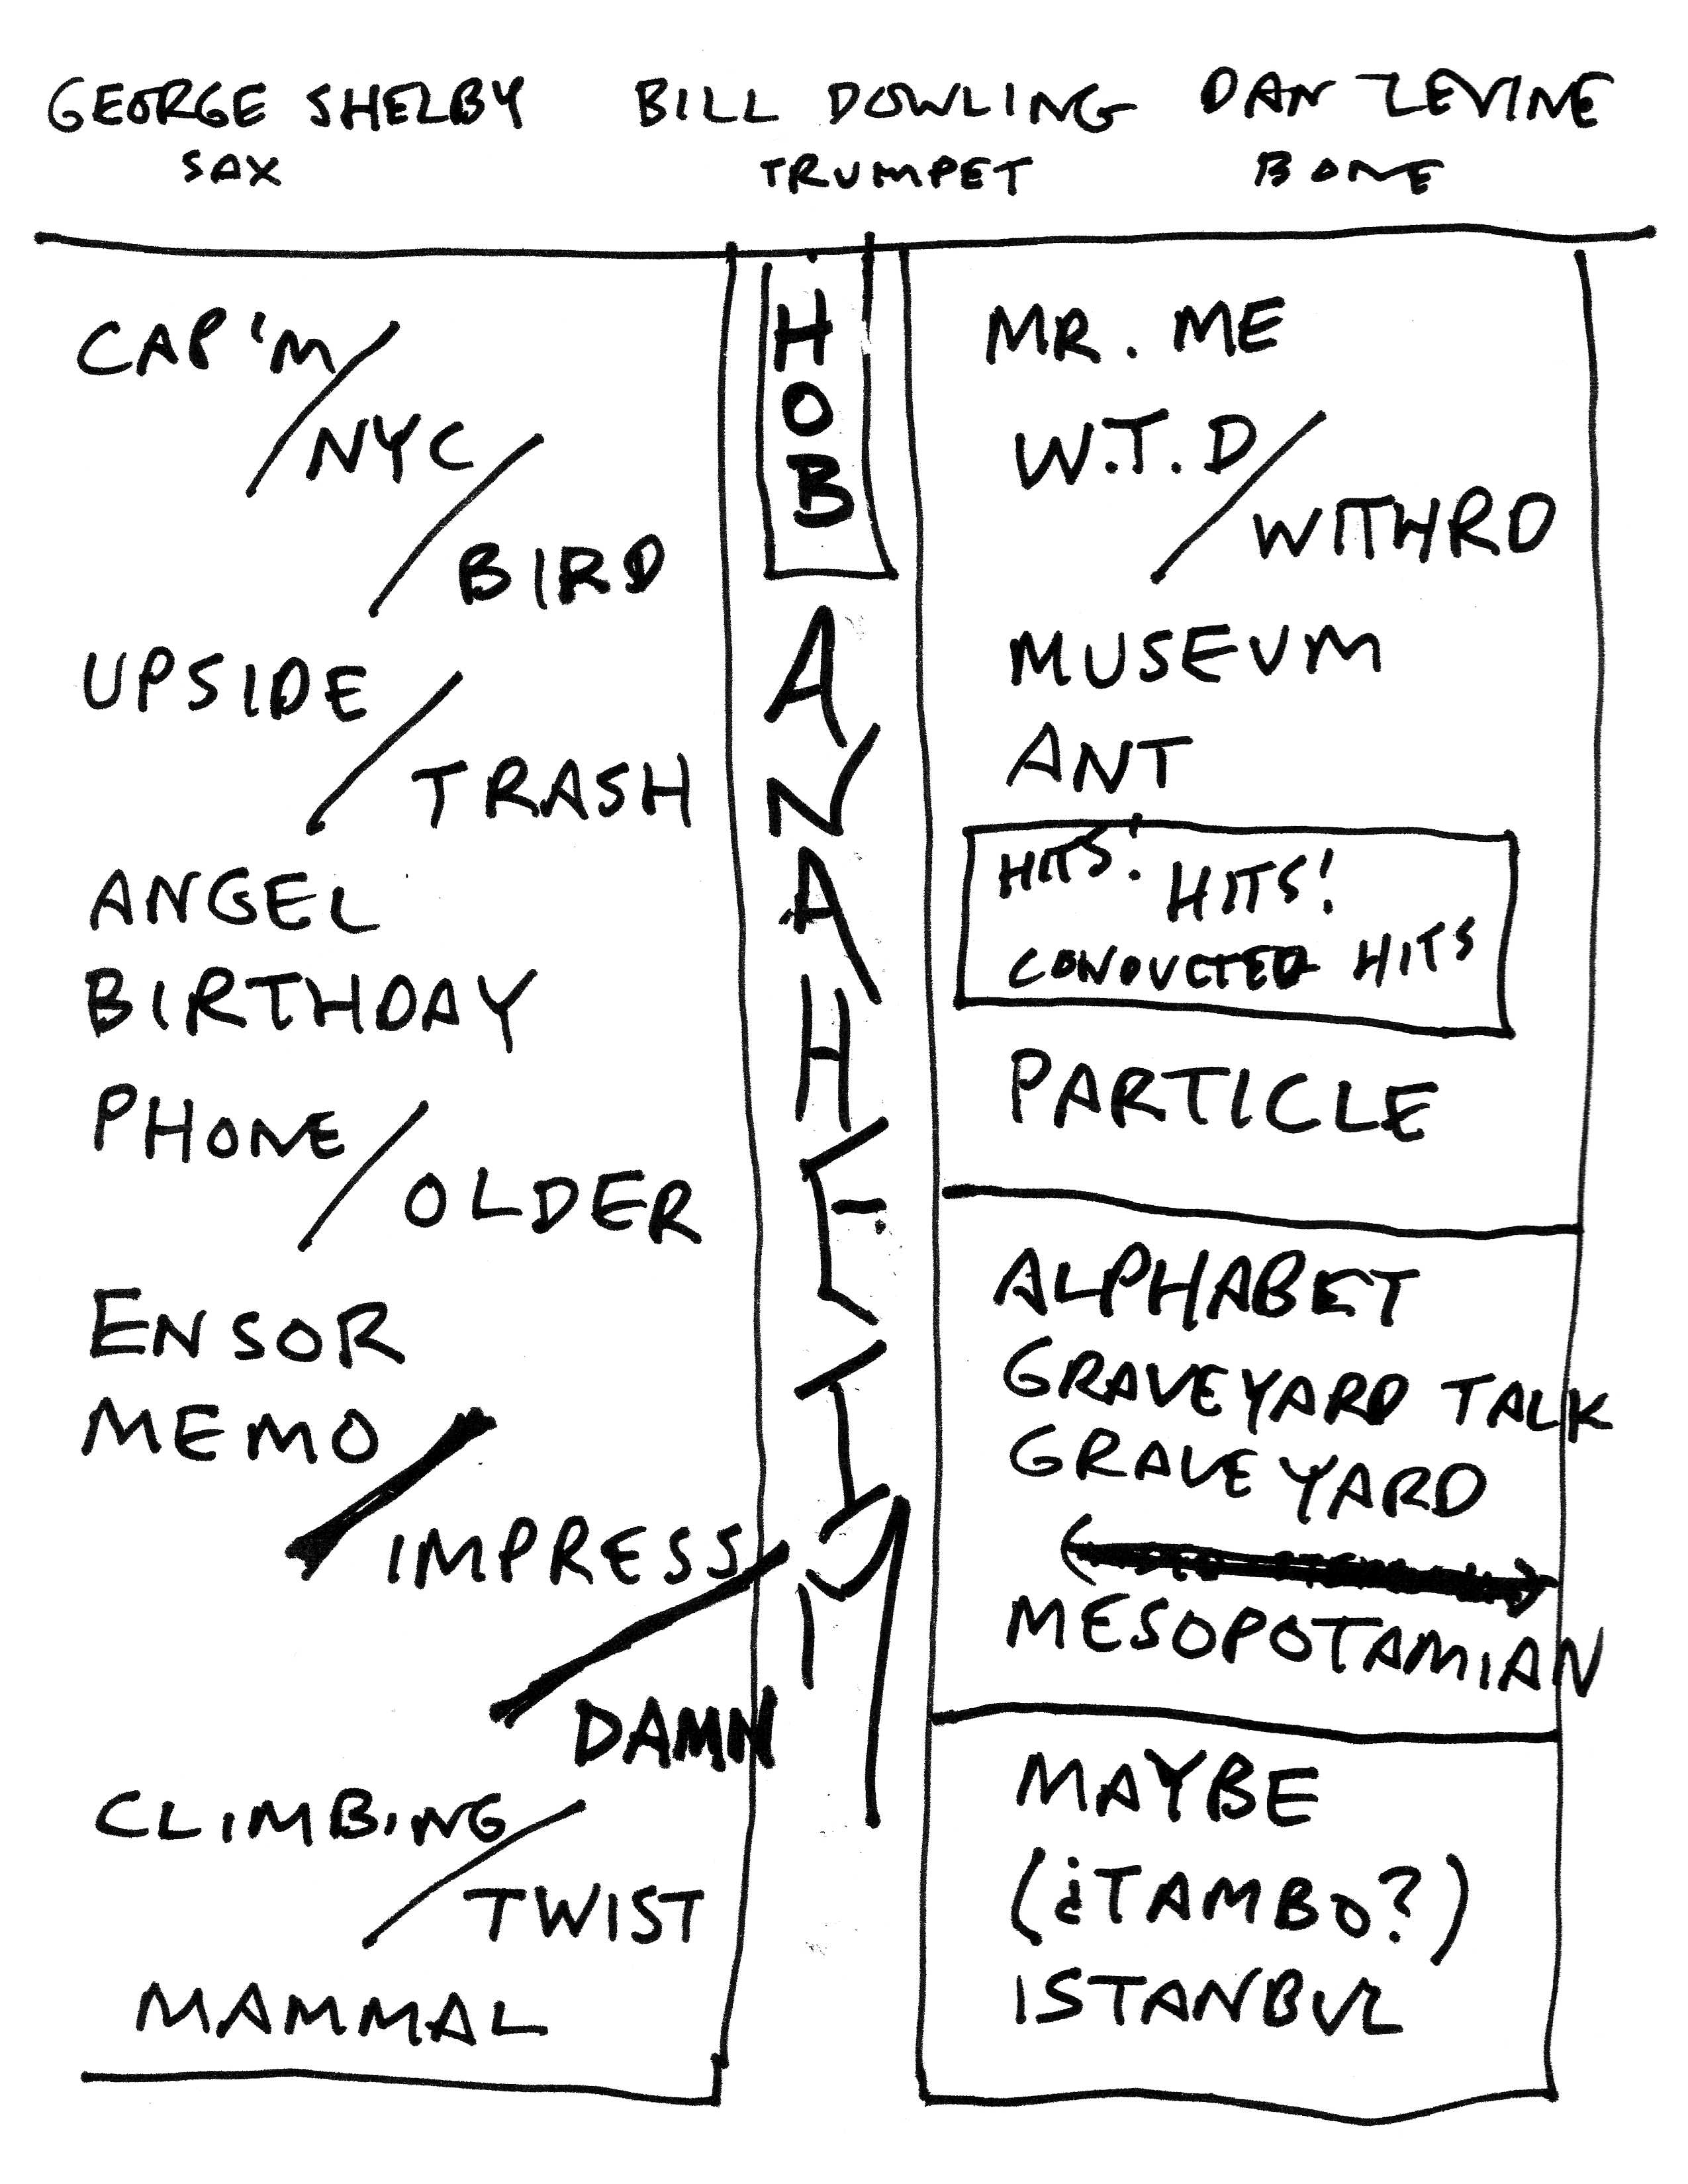 GEORGE SHELBY BILL DOWLING DAN LEVINE
SAX TRUMPET BONE
CAP'M/
NYC/
BIRD
UPSIDE/
TRASH
ANGEL
BIRTHDAY
PHONE/
OLDER
ENSOR
MEMO/
IMPRESS/
DAMN
CLIMBING/
TWIST
MAMMAL
HOB
ANAHEIM
MR. ME
W.T.D/
WITHRD
MUSEUM
ANT
HITS! HITS!
CONDUCTED HITS
PARTICLE
ALPHABET
GRAVEYARD TALK
GRAVEYARD
MESOPOTAMIAN
MAYBE
(¿TAMBO?)
ISTANBUL